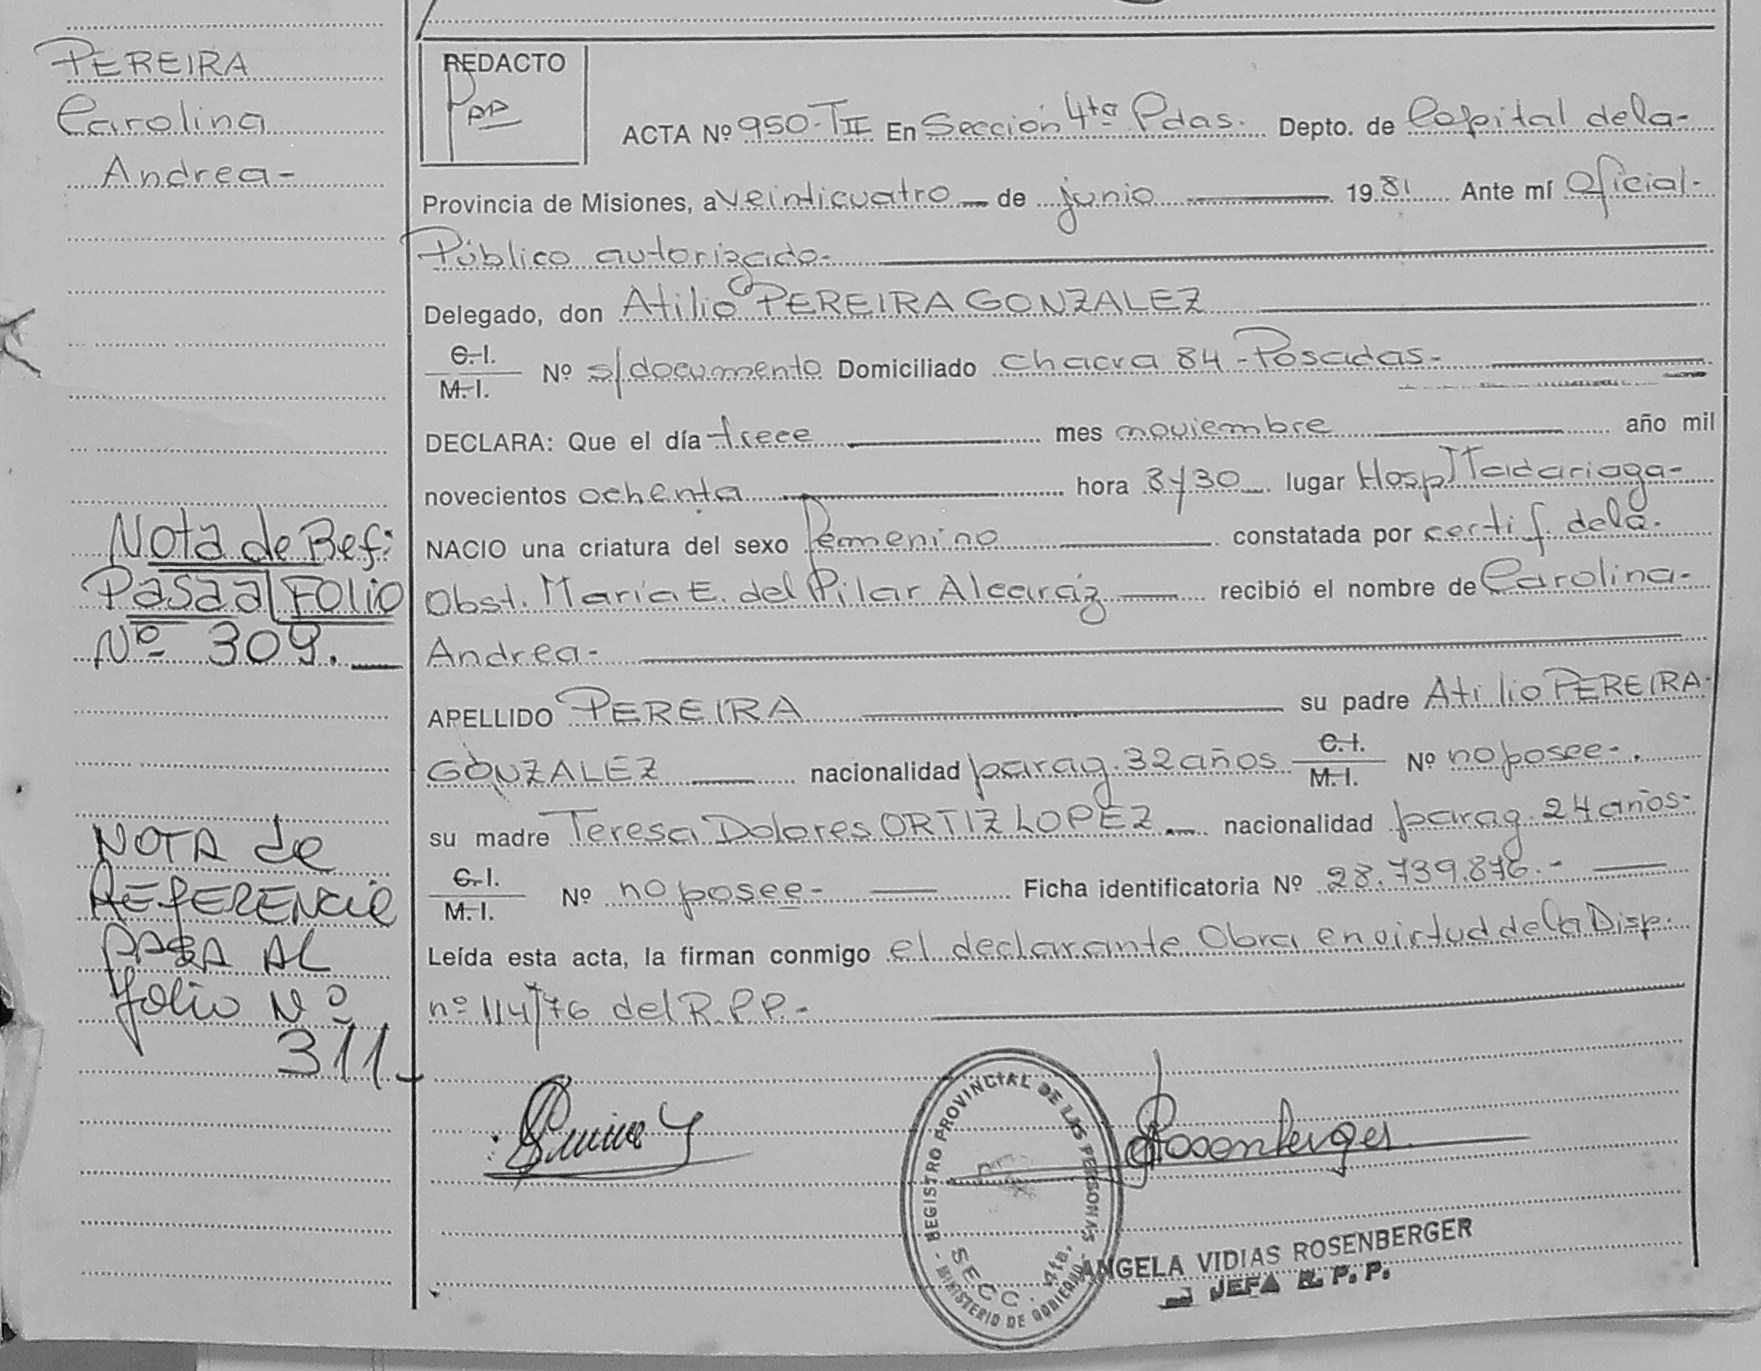 PEREIRA
Carolina
Andrea-
Nota de Ref:
Pasa al FOLIO
Nº 309.
NOTA de
REFERENCIA
PASA AL
folio Nº
311.-
REDACTO
ACTA Nº 950-TII En Sección 4ta Pdas. Depto. de Capital de la-
Provincia de Misiones, a veinticuatro de junio 1981 Ante mí Oficial-
Público autorizado-
Delegado, don Atilio PEREIRA GONZALEZ
C.I.
M.I. Nº s/documento Domiciliado Chacra 84-Posadas-
DECLARA: Que el día trece mes noviembre año mil
novecientos ochenta hora 8/30 lugar Hosp Madariaga-
NACIO una criatura del sexo femenino constatada por certif. de la-
Obst. María E. del Pilar Alcaráz recibió el nombre de Carolina-
Andrea-
APELLIDO PEREIRA su padre Atilio PEREIRA-
GONZALEZ nacionalidad parag. 32 años C.I. Nº no posee-.
M.I.
su madre Teresa Dolores ORTIZ LOPEZ nacionalidad parag. 24 años-
C.I.
M.I. Nº no posee- Ficha identificatoria Nº 28.739.876.-
Leída esta acta, la firman conmigo el declarante Obra en virtud de la Disp.
nº 114/76 del R.P.P.-
Rosenberger
REGISTRO PROVINCIAL DE LAS PERSONAS
SECC. 4ta.
MINISTERIO DE GOBIERNO
ANGELA VIDIAS ROSENBERGER
JEFA R.P.P.